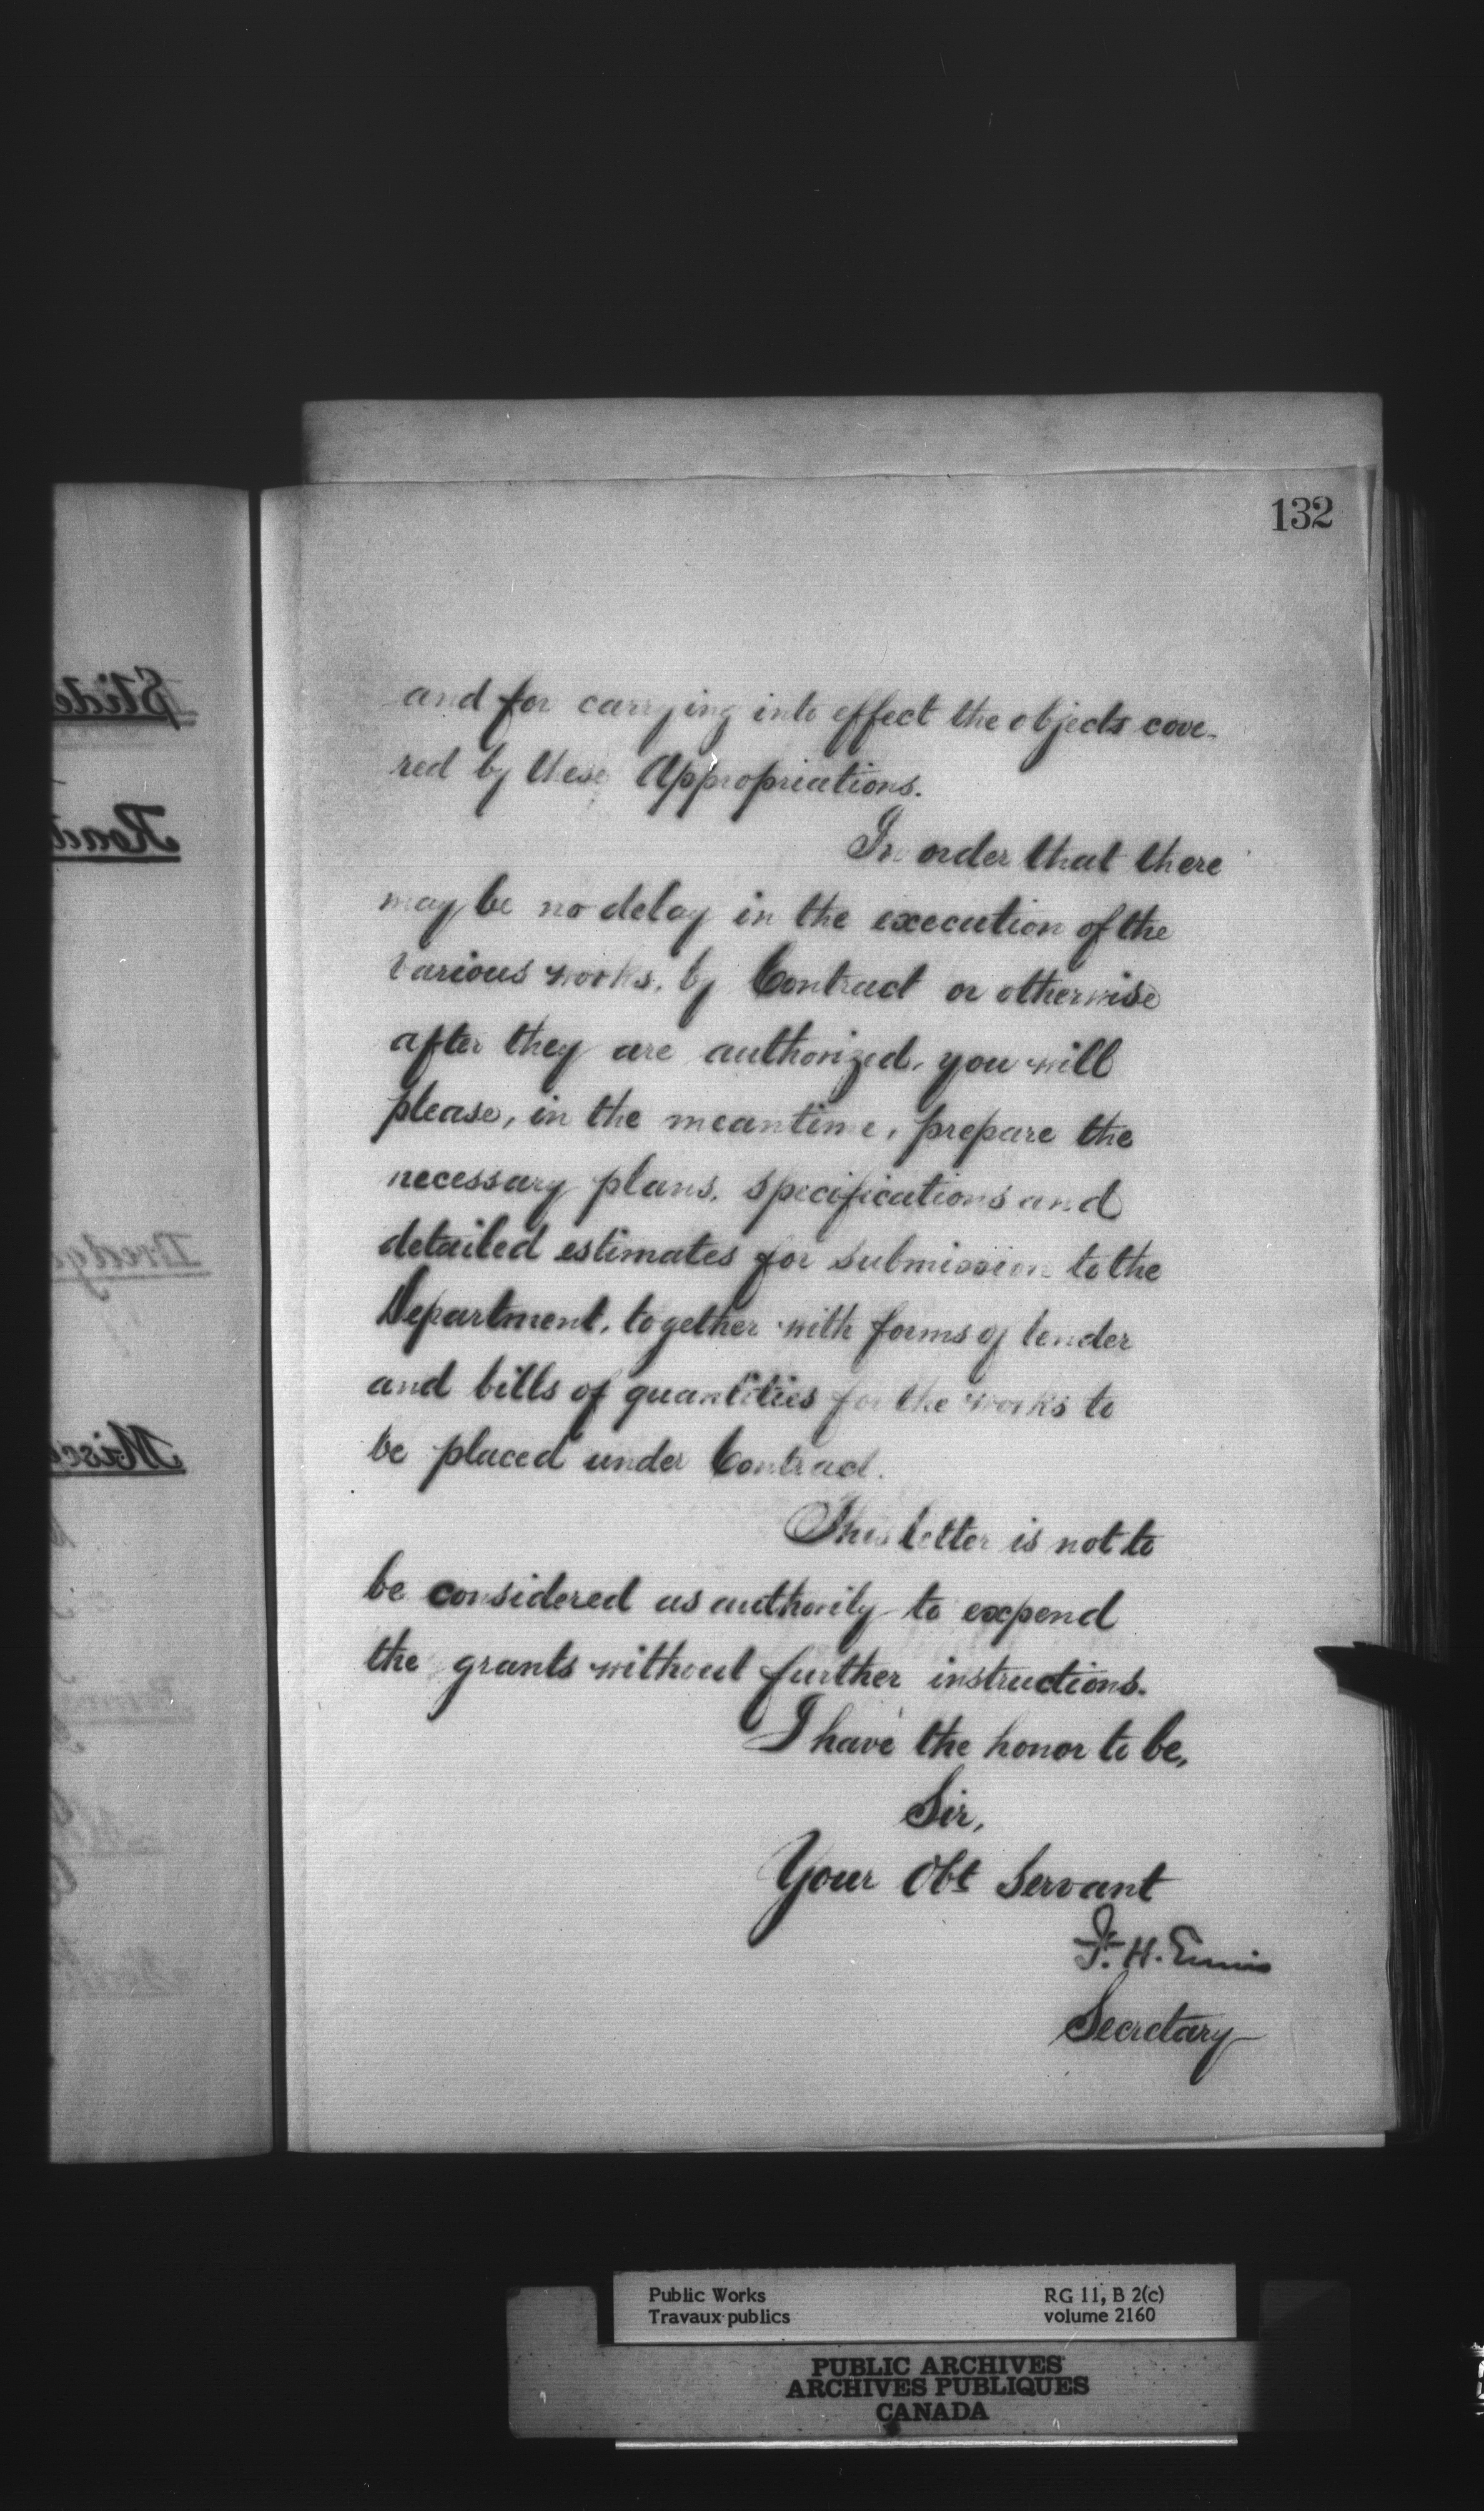 132
and for carrying into effect the objects cove-
red by these Appropriations.
In order that there
may be no delay in the execution of the
various works, by Contract or otherwise
after they are authorized, you will
please, in the meantime, prepare the
necessary plans, specifications and
detailed estimates for submission to the
Department, together with forms of tender
and bills of quantities for the works to
be placed under Contract.
This letter is not to
be considered as authority to expend
the grants without further instructions.
I have the honor to be,
Sir,
Your Obt Servant
F. H. Ennis
Secretary
Public Works
Travaux publics
RG 11, B 2(c)
volume 2160
PUBLIC ARCHIVES
ARCHIVES PUBLIQUES
CANADA